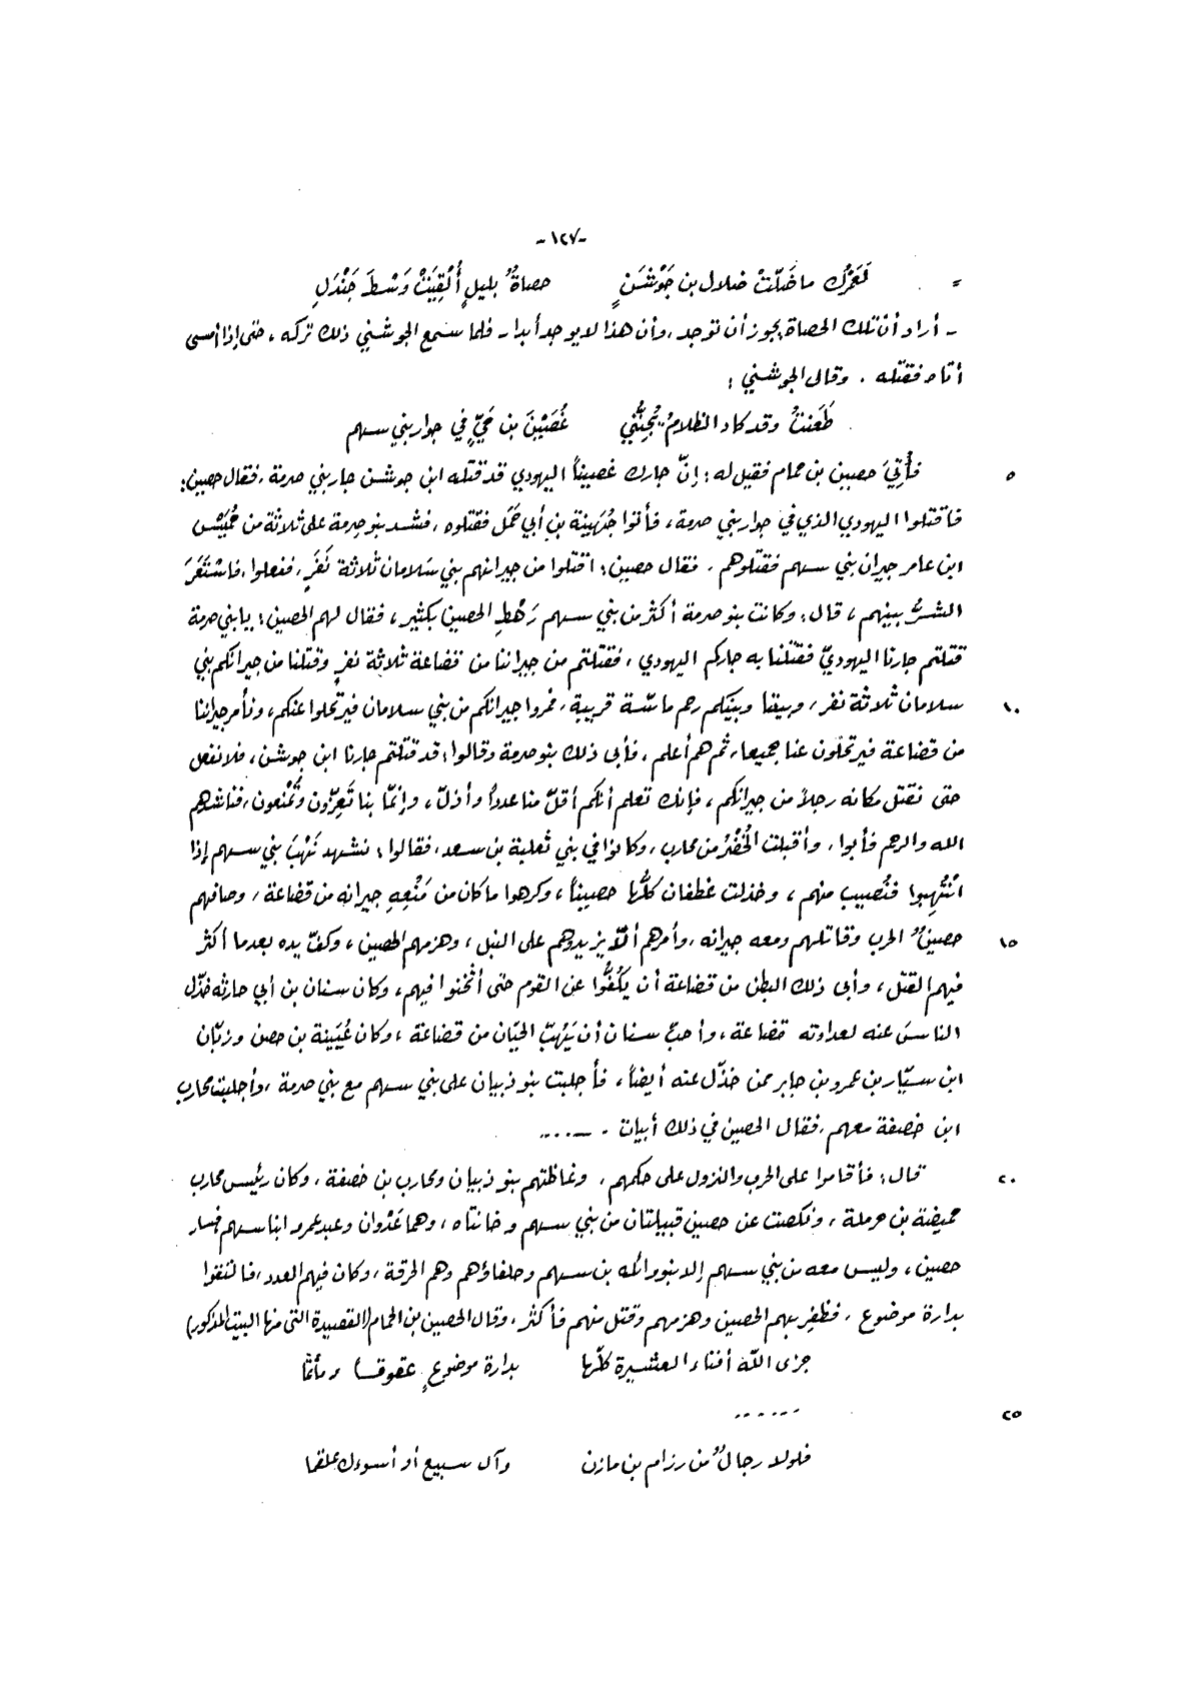 -١٢٧-
= لَعَمْرُك ما ضَلّتْ ضلال بن جَوْشَنٍ حصاةٌ بليلٍ أُلْقِيَتْ وَسْطَ جَنْدَلِ
- أراد أن تلك الحصاة يجوز أن توجد، وأن هذا لا يوجد أبدا - فلما سمع الجوشني ذلك تركه، حتى إذا أمسى
أتاه فقتله . وقال الجوشني :
طَعَنتُ وقد كاد الظلامُ يُجِنُّني غُصَيْنَ بن حَيٍّ في جوار بني سهم
٥ فأُتِيَ حصين بن حمام فقيل له : إنّ جارك غصيناً اليهودي قد قتله ابن جوشن جار بني صرمة، فقال حصين:
فاقتلوا اليهودي الذي في جوار بني صرمة، فأتوا جُهَينة بن أبي حَمَل فقتلوه، فشد بنو صرمة على ثلاثة من حُمَيْس
ابن عامر جيران بني سهم فقتلوهم . فقال حصين : اقتلوا من جيرانهم بني سَلامان ثلاثة نَفَرٍ، ففعلوا، فاسْتَعَرَ
الشرُّ بينهم، قال : وكانت بنو صرمة أكثر من بني سهم رَهْطِ الحصين بكثير، فقال لهم الحصين : يا بني صرمة
قتلتم جارنا اليهوديّ فقتلنا به جاركم اليهودي، فقتلتم من جيراننا من قضاعة ثلاثة نفرٍ وقتلنا من جيرانكم بني
١٠ سلامان ثلاثة نفر، وبيننا وبينكم رحم ماسّة قريبة، فمروا جيرانكم من بني سلامان فيرتحلوا عنكم، ونأمر جيراننا
من قضاعة فيرتحلون عنا جميعا، ثم هم أعلم . فأبى ذلك بنو صرمة وقالوا : قد قتلتم جارنا ابن جوشن، فلا نفعل
حتى نقتل مكانه رجلاً من جيرانكم، فإنك تعلم أنكم أقلّ منا عدداً وأذلّ، وإنمّا بنا تَعِزّون وتُمْنعون، فناشدهم
الله والرحم فأبوا . وأقبلت الخُضْرُ من محارب، وكانوا في بني ثعلبة بن سعد، فقالوا : نشهد نَهْبَ بني سهم إذا
انْتُهِبوا فنُصيب منهم، وخذلت غطفان كلُّها حصيناً، وكرهوا ما كان من مَنْعِهِ جيرانه من قضاعة، وصافهم
١٥ حصينٌ الحرب وقاتلهم ومعه جيرانه، وأمرهم ألاّ يزيدوهم على النبل، وهزمهم الحصين، وكفّ يده بعدما أكثر
فيهم القتل، وأبى ذلك البطن من قضاعة أن يَكُفُّوا عن القوم حتى أثخنوا فيهم، وكان سنان بن أبي حارثه خذّل
الناسَ عنه لعداوته قضاعة، وأحبّ سنان أن يَهُبّ الحيّان من قضاعة، وكان عُيَينة بن حصن وزبّان
ابن سيّار بن عمرو بن جابر ممن خذّل عنه أيضاً، فأجلبت بنو ذبيان على بني سهم مع بني صرمة، وأجلبت محارب
ابن خصفة معهم، فقال الحصين في ذلك أبيات . ـ....
٢٠ قال : فأقاموا على الحرب والنزول على حكمهم، وغاظتهم بنو ذبيان ومحارب بن خصفة، وكان رئيس محارب
حميضة بن حرملة، ونكصت عن حصين قبيلتان من بني سهم وخانتاه، وهما عَدْوان وعبد عمرو ابنا سهم فسار
حصين، وليس معه من بني سهم إلا بنو وائله بن سهم وحلفاؤهم وهم الحرقة، وكان فيهم العدد، فالتقوا
بدارة موضوع، فظفِر بهم الحصين وهزمهم وقتل منهم فأكثر، وقال الحصين بن الحمام (القصيدة التى منها البيت المذكور)
جزى اللّه أفناء العشيرة كلّها بدارة موضوعٍ عقوقا ومأثما
٢٥ ......
فلولا رجالٌ من رزام بن مازن وآل سبيع أو أسوءك علقما